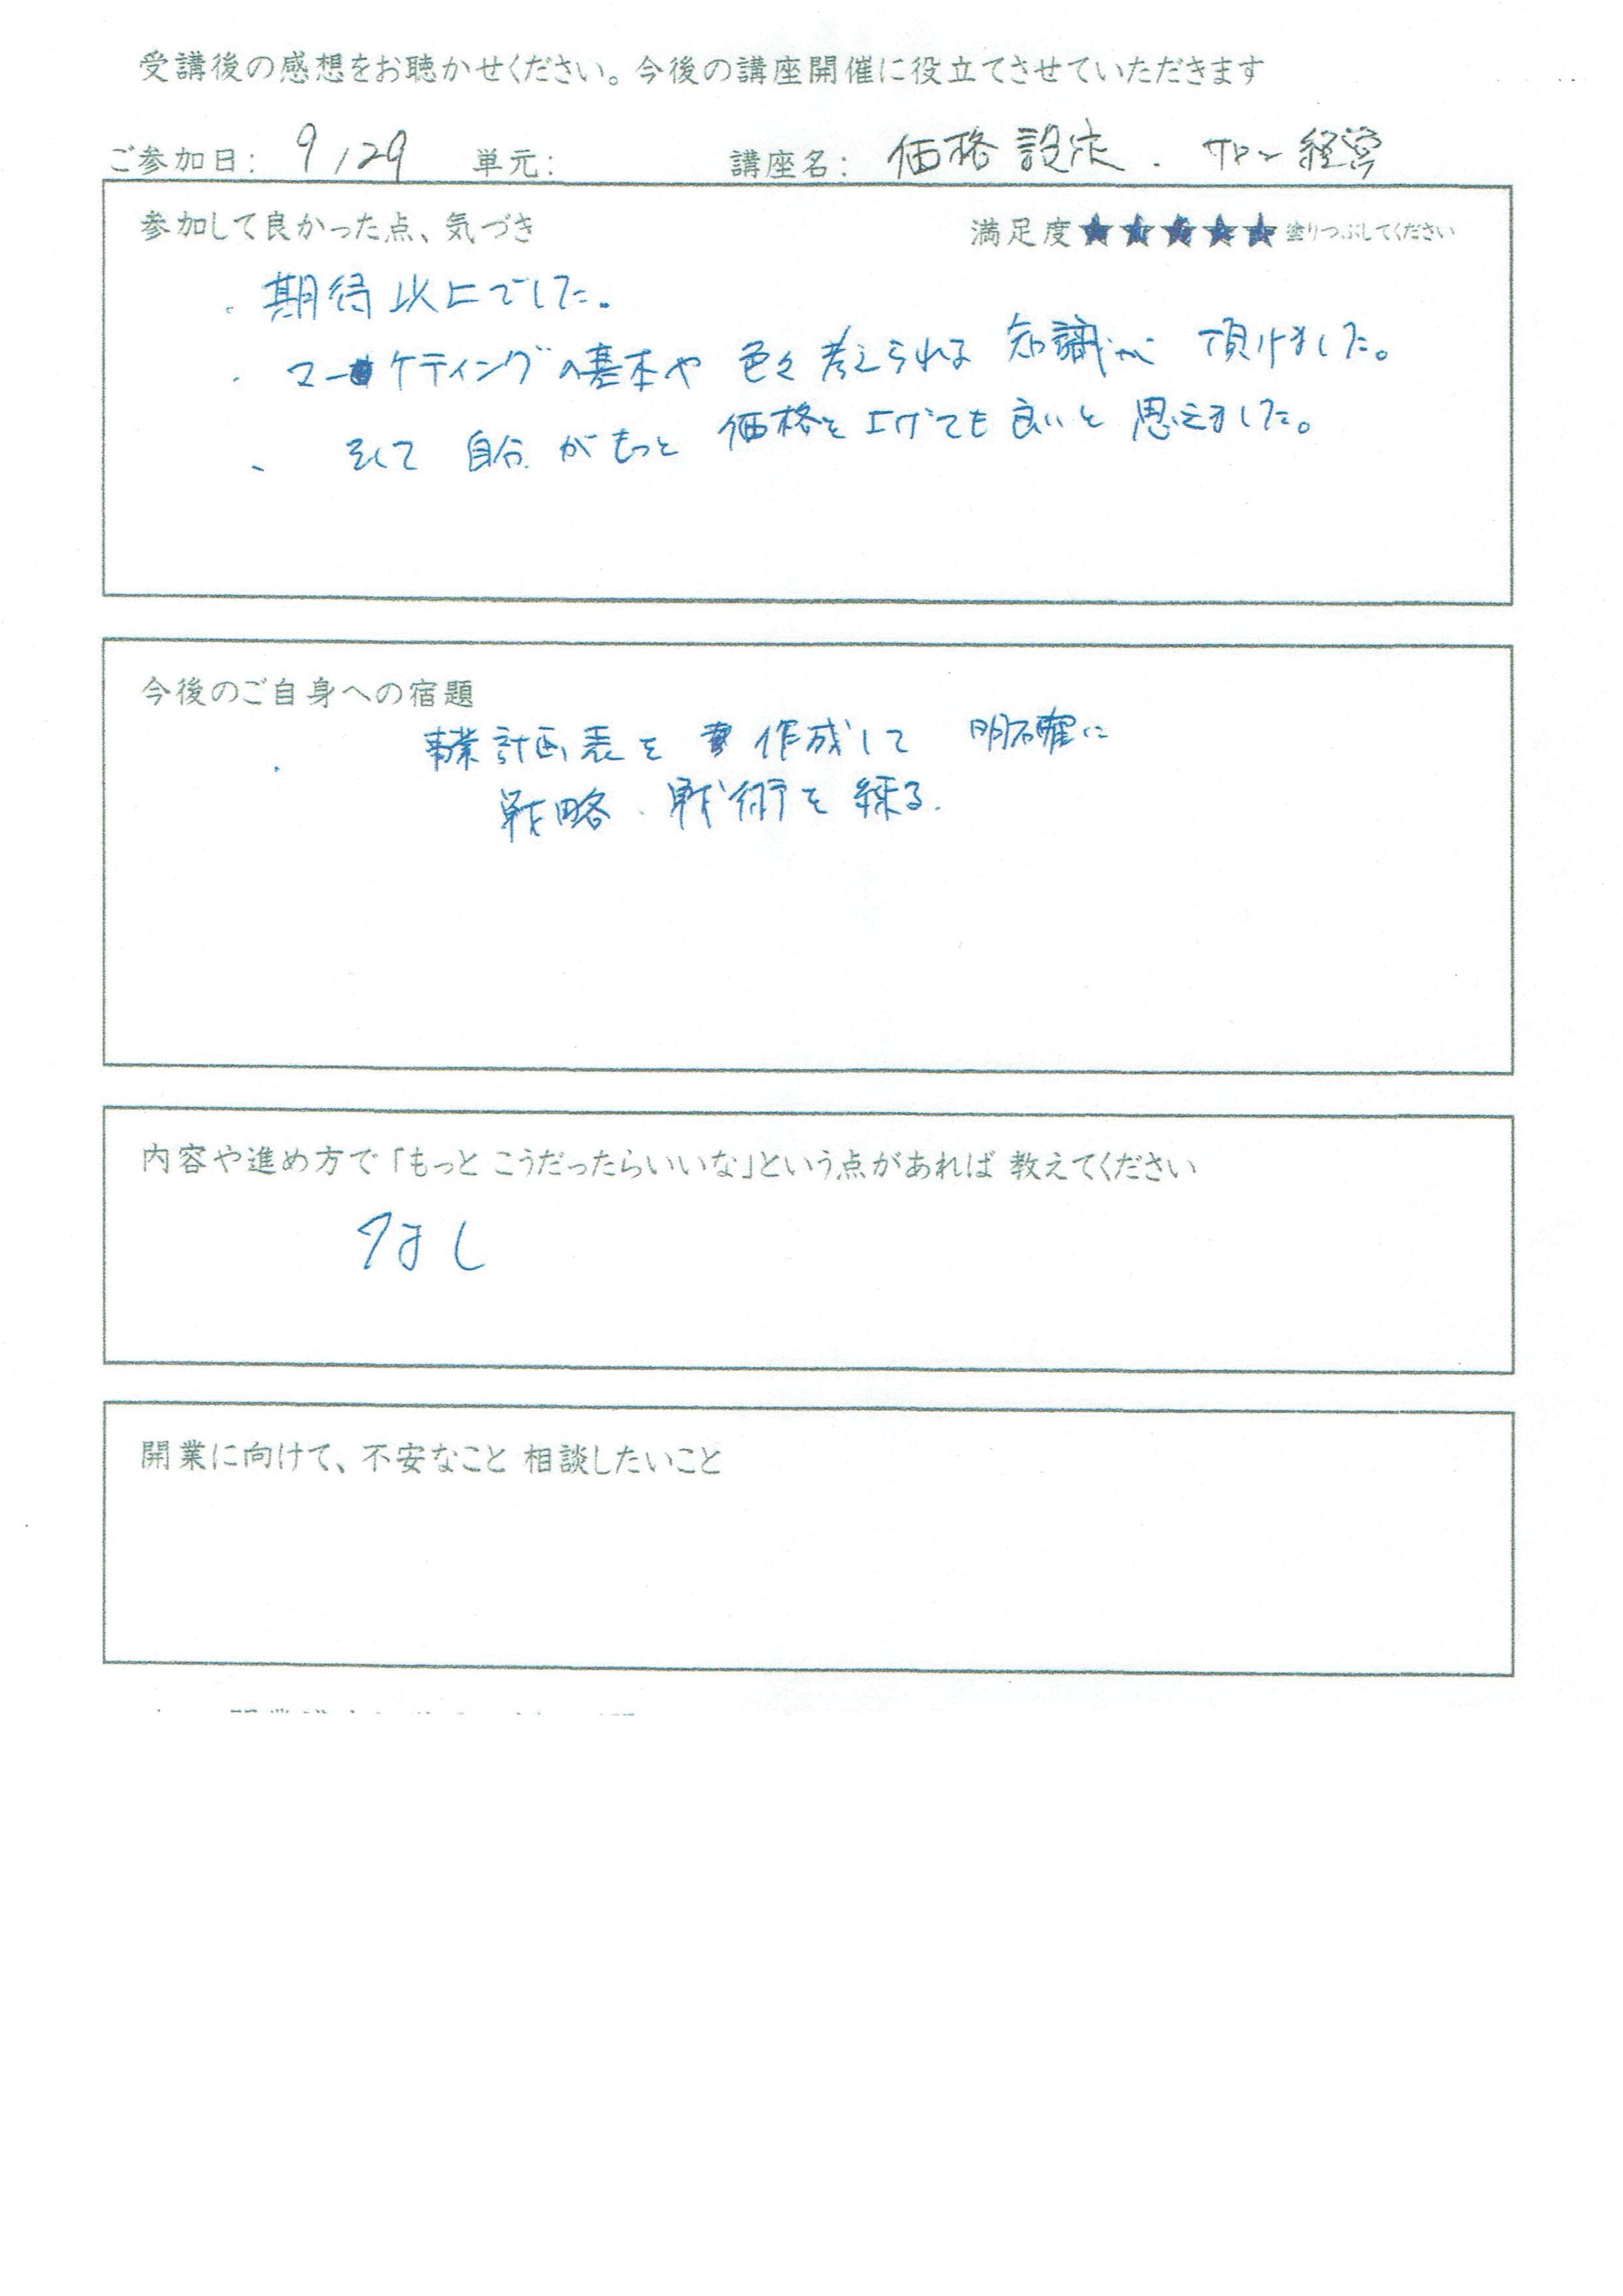 受講後の感想をお聴かせください。今後の講座開催に役立てさせていただきます
ご参加日: 9/29 単元: 講座名: 価格設定. サロン経営
参加して良かった点、気づき 満足度★★★★★塗りつぶしてください
・期待以上でした。
・マーケティングの基本や色々考えられる知識が頂けました。
、そして自分がもっと価格を上げても良いと思えました。
今後のご自身への宿題
・事業計画表を作成して明確に
戦略・戦術を練る.
内容や進め方で「もっと こうだったらいいな」という点があれば 教えてください
なし
開業に向けて、不安なこと 相談したいこと